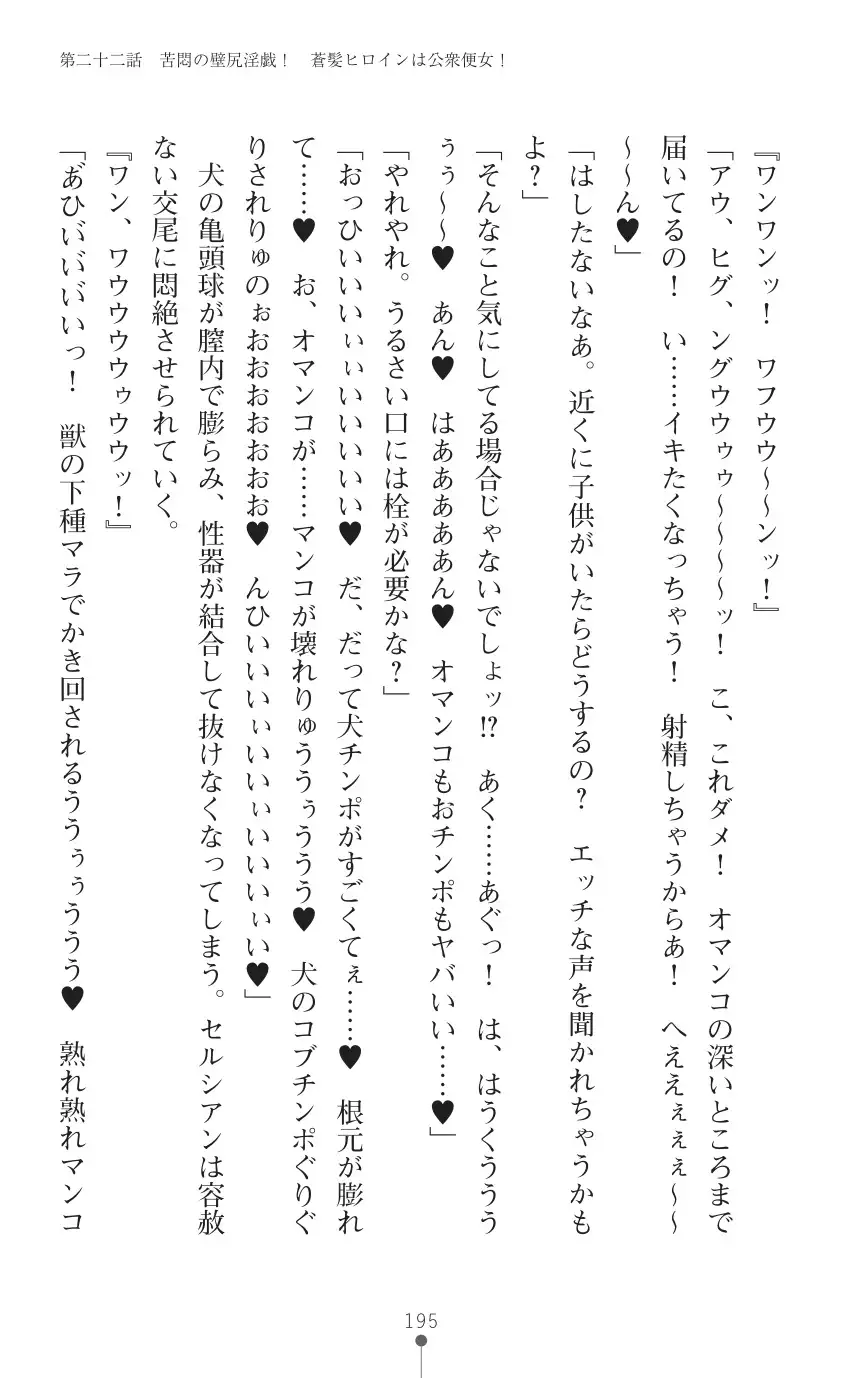 第二十二話　苦悶の壁尻淫戯！　蒼髪ヒロインは公衆便女！
『ワンワンッ！　ワフウウ～～ンッ！』
「アウ、ヒグ、ングウウゥゥ～～～～ッ！　こ、これダメ！　オマンコの深いところまで
届いてるの！　い……イキたくなっちゃう！　射精しちゃうからぁ！　へええぇぇぇ～～
～～ん♥」
「はしたないなあ。近くに子供がいたらどうするの？　エッチな声を聞かれちゃうかも
よ？」
「そんなこと気にしてる場合じゃないでしょッ!?　あく……あぐっ！　は、はうくううう
ぅぅ～～♥　あん♥　はああああああん♥　オマンコもおチンポもヤバいい……♥」
「やれやれ。うるさい口には栓が必要かな？」
「おっひいいいいぃぃいいいいいい♥　だ、だって犬チンポがすごくてぇ……♥　根元が膨れ
て……♥　お、オマンコが……マンコが壊れりゅううぅううう♥　犬のコブチンポぐりぐ
りされりゅのぉおおおおおおおお♥　んひいいいいぃいいいぃいいいいぃい♥」
　犬の亀頭球が膣内で膨らみ、性器が結合して抜けなくなってしまう。セルシアンは容赦
ない交尾に悶絶させられていく。
『ワン、ワウウウウゥウウッ！』
「あ゙ひい゙い゙い゙いっ！　獣の下種マラでかき回されるううぅぅううう♥　熟れ熟れマンコ
195